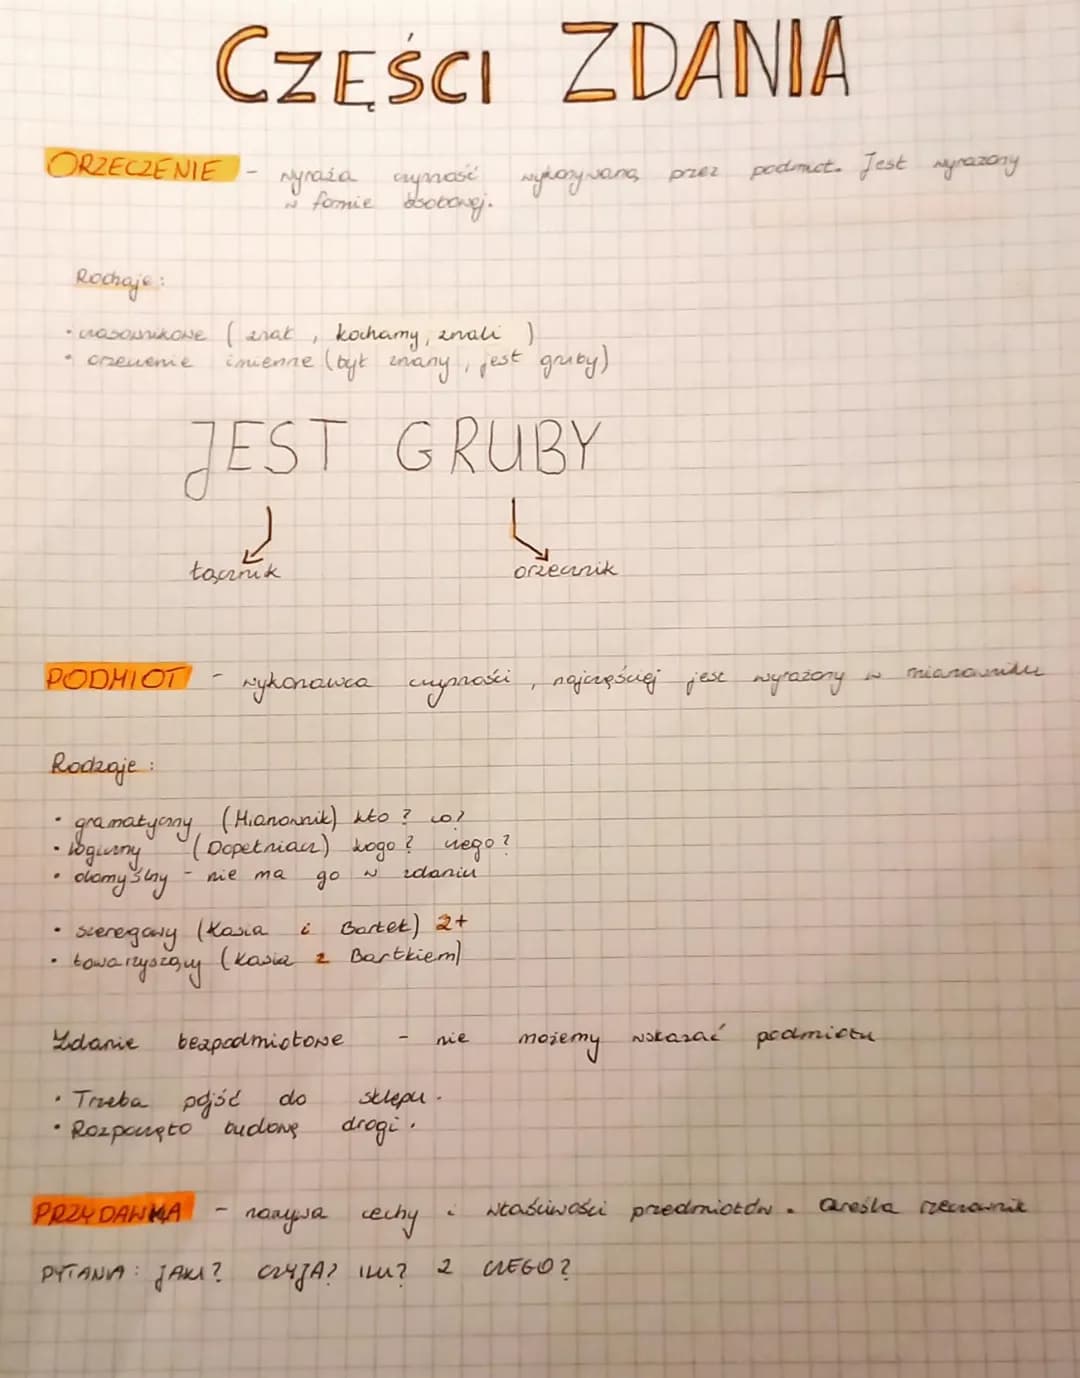 CZĘŚCI ZDANIA
ORZECZENIE - wyraża czynność wykonywaną przez podmiot. Jest wyrażony
w formie osobowej.
Rodzaje:
• czasownikowe ( znał , kochamy, znali )
• orzeczenie imienne (był znany, jest gruby)
JEST GRUBY
łącznik orzecznik
PODMIOT - wykonawca czynności, najczęściej jest wyrażony w mianowniku
Rodzaje:
• gramatyczny (Mianownik) kto? co?
• logiczny (Dopełniacz) kogo? czego?
• domyślny - nie ma go w zdaniu
• szeregowy (Kasia i Bartek) 2+
• towarzyszący (Kasia z Bartkiem)
Zdanie bezpodmiotowe - nie możemy wskazać podmiotu
• Trzeba pójść do sklepu.
• Rozpoczęto budowę drogi.
PRZYDAWKA - nazywa cechy i właściwości przedmiotów. Określa rzeczownik
PYTANIA: JAKI? CZYJA? ILU? Z CZEGO?